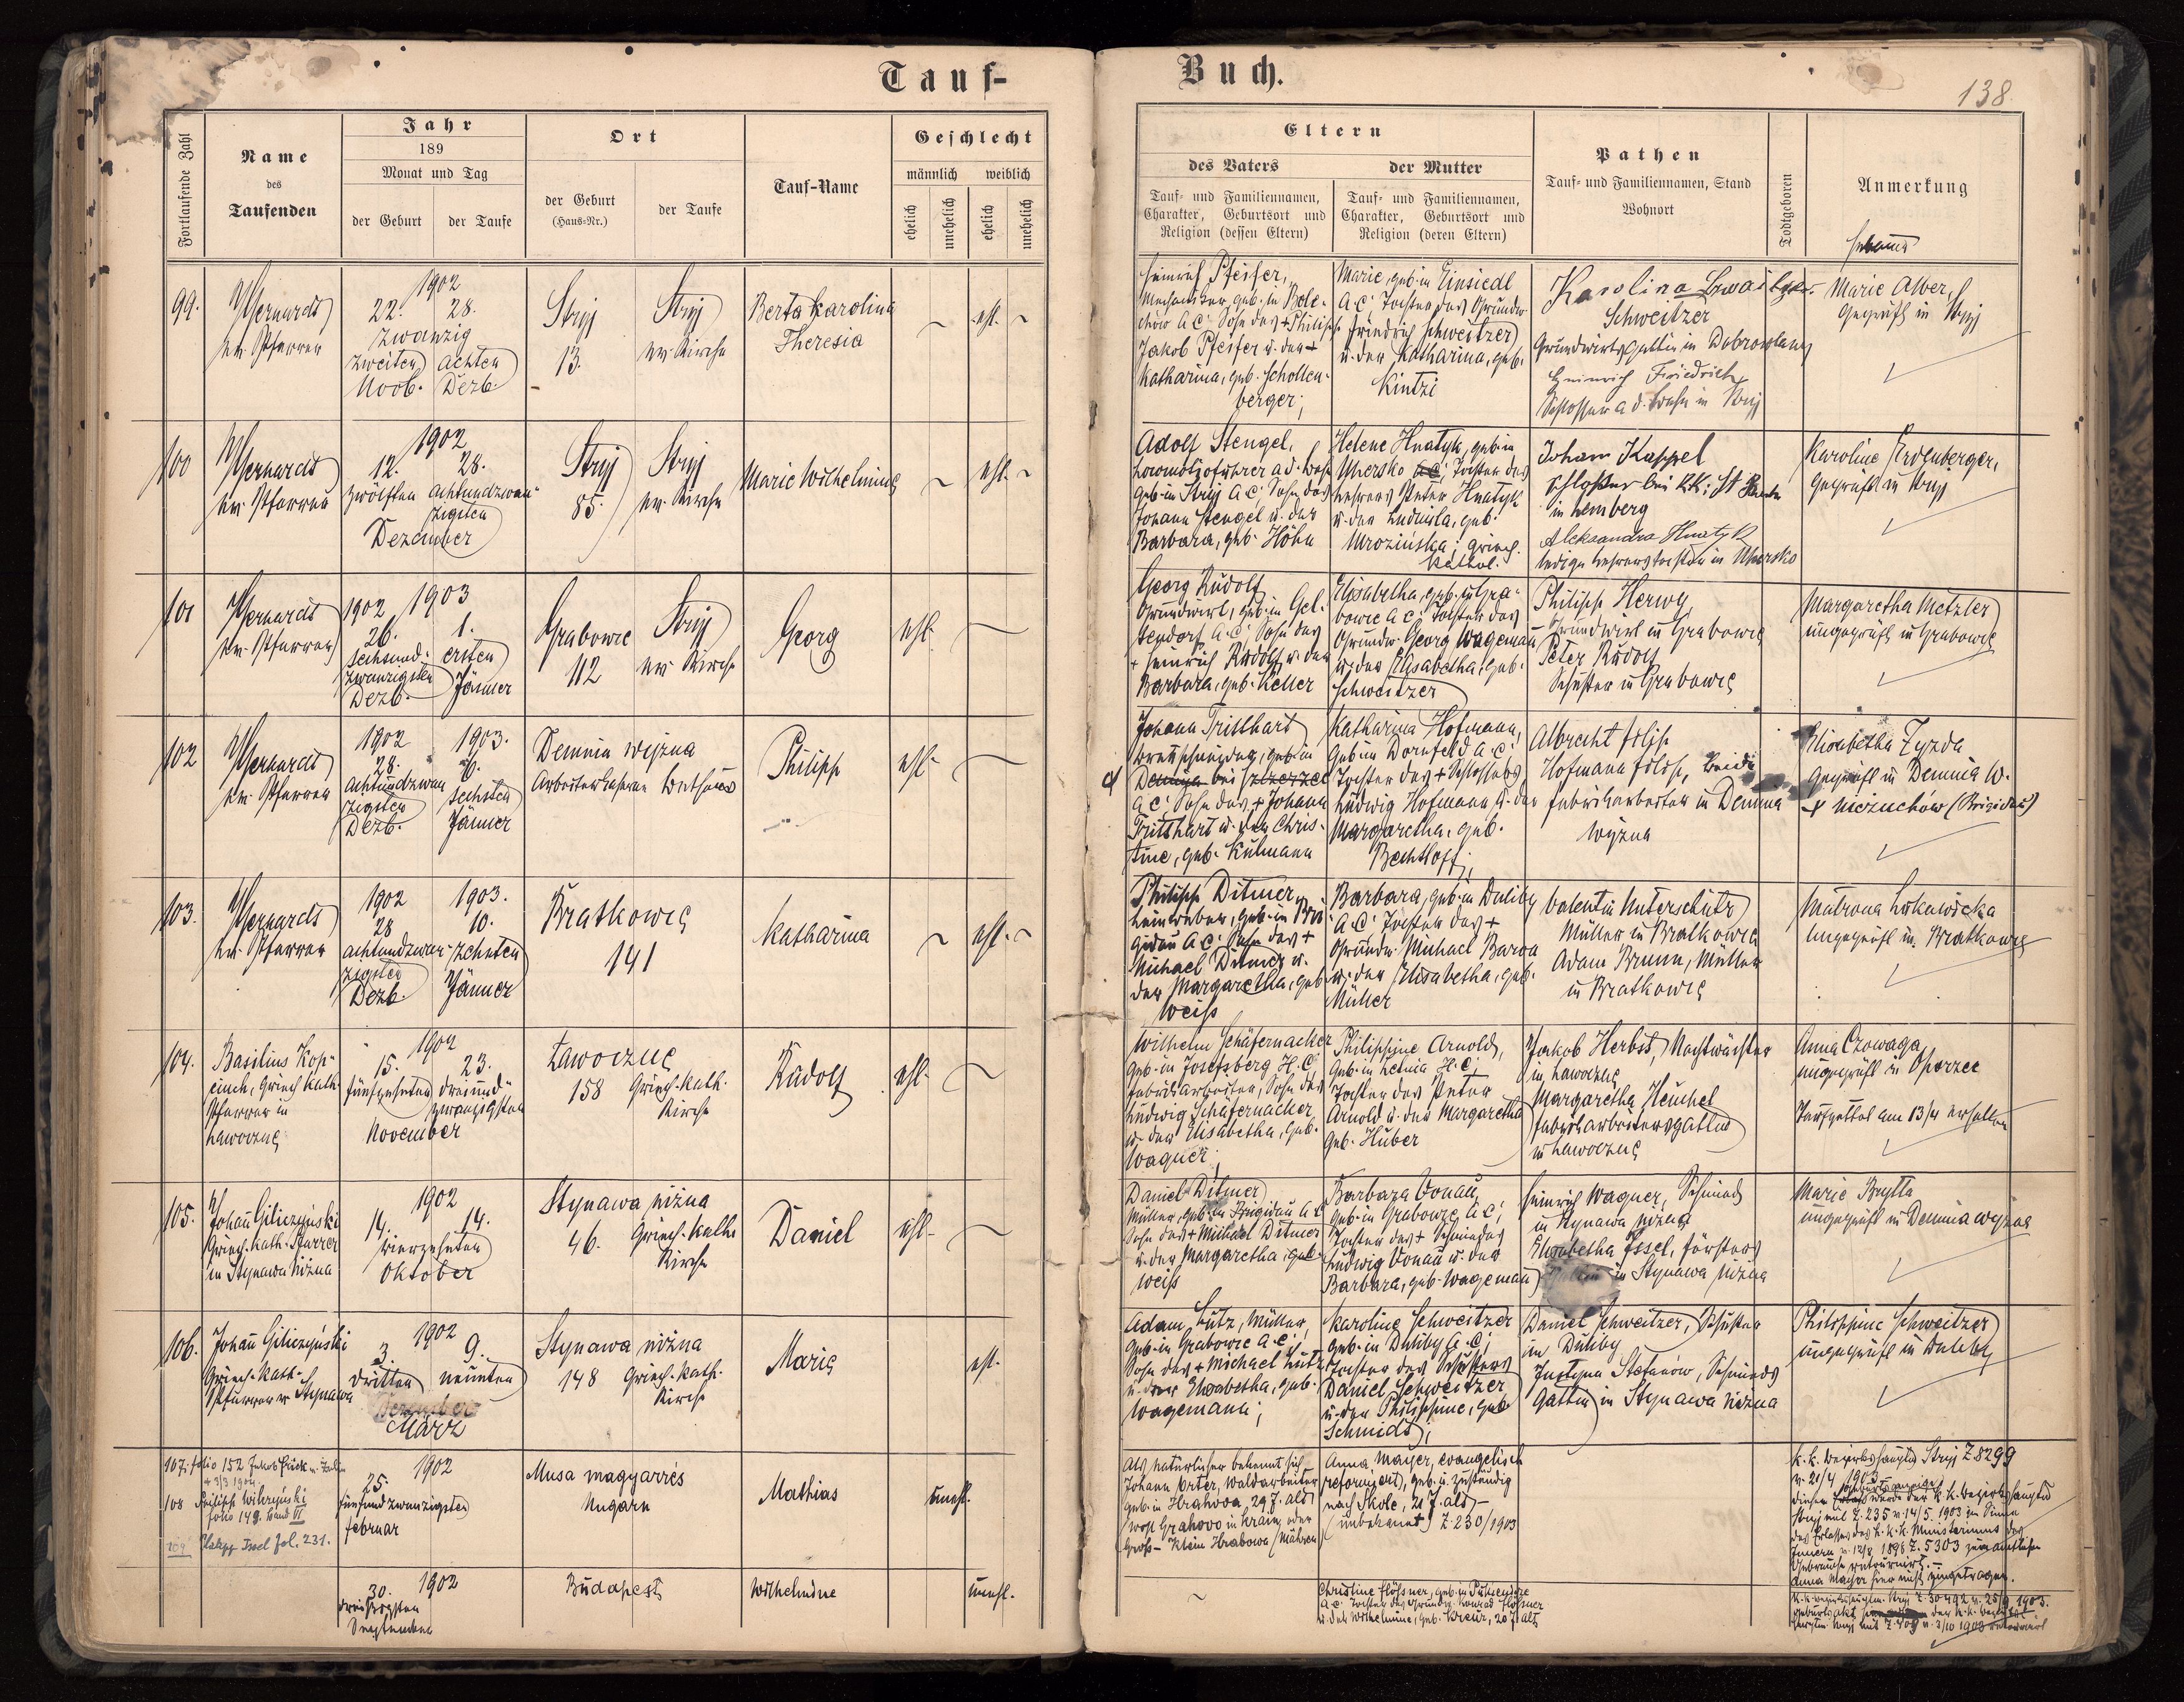 Tauf-
Buch.
138
Fortlaufende Zahl
Name
des
Taufenden
Jahr
189
Monat und Tag
der Geburt
der Taufe
Ort
der Geburt
(Haus-Nr.)
der Taufe
Tauf-Name
Geschlecht
männlich
weiblich
ehelich
unehelich
ehelich
unehelich
Eltern
des Vaters
Tauf- und Familiennamen,
Charakter, Geburtsort und
Religion (dessen Eltern)
der Mutter
Tauf- und Familiennamen,
Charakter, Geburtsort und
Religion (deren Eltern)
Pathen
Tauf- und Familiennamen, Stand
Wohnort
Todtgeboren
Anmerkung
Hebamme
99.
ev. Pfarrer
1902
22. 28.
zwanzig
zweiten achten
Novb. Dezb.
Stryj
13.
Stryj
ev. Kirche
Berta Karolina
Theresia
ehl.
Heinrich Pfeifer,
Mechaniker, geb. in Bole-
chów A.C. Sohn des + Philipp
Jakob Pfeifer u. der +
Katharina, geb. Schollen-
berger;
Marie, geb. in Einsiedl
A.C. Tochter des Grundw.
Friedrich Schweitzer
u. der Katharina, geb.
Kintzi
Karolina
Schweitzer
Grundwirtsgattin in Dobrowlany
Heinrich Friedrich
Schlosser a.d. Bahn in Stryj
Marie Alver,
geprüft in Stryj
100
ev. Pfarrer
1902
12. 28.
zwölften achtundzwan-
zigsten
Dezember
Stryj
85.
Stryj
ev. Kirche
Marie Wilhelmine
ehl.
Adolf Stengel,
Locomotivführer a.d. Bahn
geb. in Stryj A.C. Sohn des
Johann Stengel u. der
Barbara, geb. Höhn
Helene Hnatyk, geb. in
Uhersko A.C. Tochter des
Lehrers Peter Hnatyk
u. der Ludmila, geb.
Mrozińska; griech.
kathol.
Johann Kappel
Schlosser bei k.k. St. Bahn
in Lemberg
Aleksandra Hnatyk
ledige Lehrerstochter in Uhersko
Karoline Erdenberger,
geprüft in Stryj
101
ev. Pfarrer
1902 1903
26. 1.
sechsund- ersten
zwanzigsten
Dezb. Jänner
Grabowce
112
Stryj
ev. Kirche
Georg
ehl.
Georg Rudolf
Grundwirt, geb. in Gel-
sendorf A.C. Sohn des
+ Heinrich Rudolf u. der
Barbara, geb. Keller
Elisabetha, geb. in Gra-
bowce A.C. Tochter des
Grundw. Georg Wageman
u. der Elisabetha, geb.
Schweitzer
Philipp Herwy
Grundwirt in Grabowce
Peter Rudolf
Schuster in Grabowce
Margaretha Metzler
ungeprüft in Grabowce
102
ev. Pfarrer
1902 1903.
28. 6.
achtundzwan sechsten
zigsten
Dezb. Jänner
Demnia wyżna
Arbeiterkaserne Bethaus
Philipp
ehl.
Johann Tritthart
Brettschneider, geb. in
Demnia bei Szczerzec
A.C. Sohn des + Johann
Tritthart u. der Chris-
tine, geb. Kulmann
Katharina Hofmann,
geb. in Dornfeld A.C.
Tochter des + Schlossers
Ludwig Hofmann u. der
Margaretha, geb.
Bechtloff;
Albrecht Filip
Hofmann Filip, beide
Fabriksarbeiter in Demnia
wyżna
Elisabetha Zyzda
geprüft in Demnia w.
+ Nieżuchów (Brigidau)
103.
ev. Pfarrer
1902 1903.
28 10.
achtundzwan- zehnten
zigsten
Dezb. Jänner
Bratkowce
141
Katharina
ehl.
Philipp Ditmer,
Leinweber, geb. in Bri-
gidau A.C. Sohn des +
Michael Ditmer u.
der Margaretha, geb.
Weiß
Barbara, geb. in Duliby
A.C. Tochter des +
Grundw. Michael Barva
u. der Elisabetha, geb.
Müller
Valentin Unterschütz
Müller in Bratkowce
Adam Brunn, Müller
in Bratkowce
Matrona Lokawicka
ungeprüft in Bratkowce
104.
Basilius Kop-
griech. kath.
Pfarrer in
Lawoczne
1902
15. 23.
fünfzehnten dreiund-
zwanzigsten
November
Ławoczne
158 Griech. kath.
Kirche
Rudolf
ehl.
Wilhelm Schäfernacker
geb. in Josefsberg H.C.
Fabriksarbeiter, Sohn des
Ludwig Schäfernacker
u. der Elisabetha, geb.
Wagner;
Philippine Arnold,
geb. in H.C.
Tochter des Peter
Arnold u. der Margaretha
geb. Huber
Jakob Herbst, Nachtwächter
in Lawoczne
Margaretha Heuchel
Fabriksarbeitersgattin
in Lawoczne
Anna Czowaga
ungeprüft in Oporzec
Taufzettel am 13/4 erhalten
105.
Johann Giliczyński
Griech. kath. Pfarrer
in Stynawa niżna
1902
14. 14.
vierzehnten
Oktober
Stynawa niżna
46. Griech. kath.
Kirche
Daniel
ehl.
Daniel Ditmer
Müller, geb. in Brigidau A.C.
Sohn des + Michael Ditmer
u. der Margaretha, geb.
Weiß
Barbara Vonau,
geb. in Grabowce A.C.;
Tochter des + Schmiedes
Ludwig Vonau u. der
Barbara, geb. Wageman
Heinrich Wagner, Schmied
in Stynawa niżna
Elisabetha Issel, Försters
in Stynawa niżna
Marie Brytta
ungeprüft in Demnia wyżna
106.
Johann Giliczyński
Griech. kath.
Pfarrer in Stynawa
1902
3. 9.
dritten neunten
März
Stynawa niżna
148 Griech. kath.
Kirche
Marie
ehl.
Adam Lutz, Müller,
geb. in Grabowce A.C.,
Sohn des + Michael Lutz
u. der Elisabetha, geb.
Wagemann;
Karoline Schweitzer
geb. in Duliby A.C.;
Tochter des Schusters
Daniel Schweitzer
u. der Philippine, geb.
Schmidt,
Daniel Schweitzer, Schuster
in Duliby
Justyna Stefanów, Schmieds
Gattin in Stynawa niżna
Philippine Schweitzer
ungeprüft in Duliby
107. folio 152 Jakob Frick
+ 3/3 1904.
108 Philipp Wilczyński
folio 149. Band VI
109 Philipp Issel fol. 231.
1902
25.
fünfundzwanzigsten
Februar
Musa magyarrés
Ungarn
Mathias
unehl.
Als natürlicher bekennt sich
Johann Orter, Waldarbeiter
geb. in Hrahovo, 29 J. alt
(wohl Grahovo in Krain, oder
Groß- Klein Hrabowa / Mähren
Anna Mayer, evangelisch
reformiert, geb. u. zuständig
nach Skole, 21 J. alt –
(unbekannt) Z. 230/1903
k.k. Bezirkshauptm. Stryj Z 8299
v. 21/4 1903
wurde der k.k. Bezirkshauptm.
Stryj mit Z. 235 v. 14/5 1903 im Sinne
des Erlasses des k.k. Ministeriums des
Innern v. 12/8 1896 Z. 5303 zum amtlichen
Gebrauche retourniert. –
Anna Mayer hier nicht eingetragen.
1902
30.
dreißigsten
September
Budapest
Wilhelmine
unehl.
Christine Flößner, geb. in
A.C. Tochter des Grundw. Konrad Flößner
u. der Wilhelmine, geb. Kreur, 20 J. alt
k.k. Bezirkshauptm. Stryj Z. 30492 v. 25/9 1903.
Geburtsakt der k.k. Bezirks-
hauptm. Stryj mit Z. 409 v. 3/10 1903 retourniert